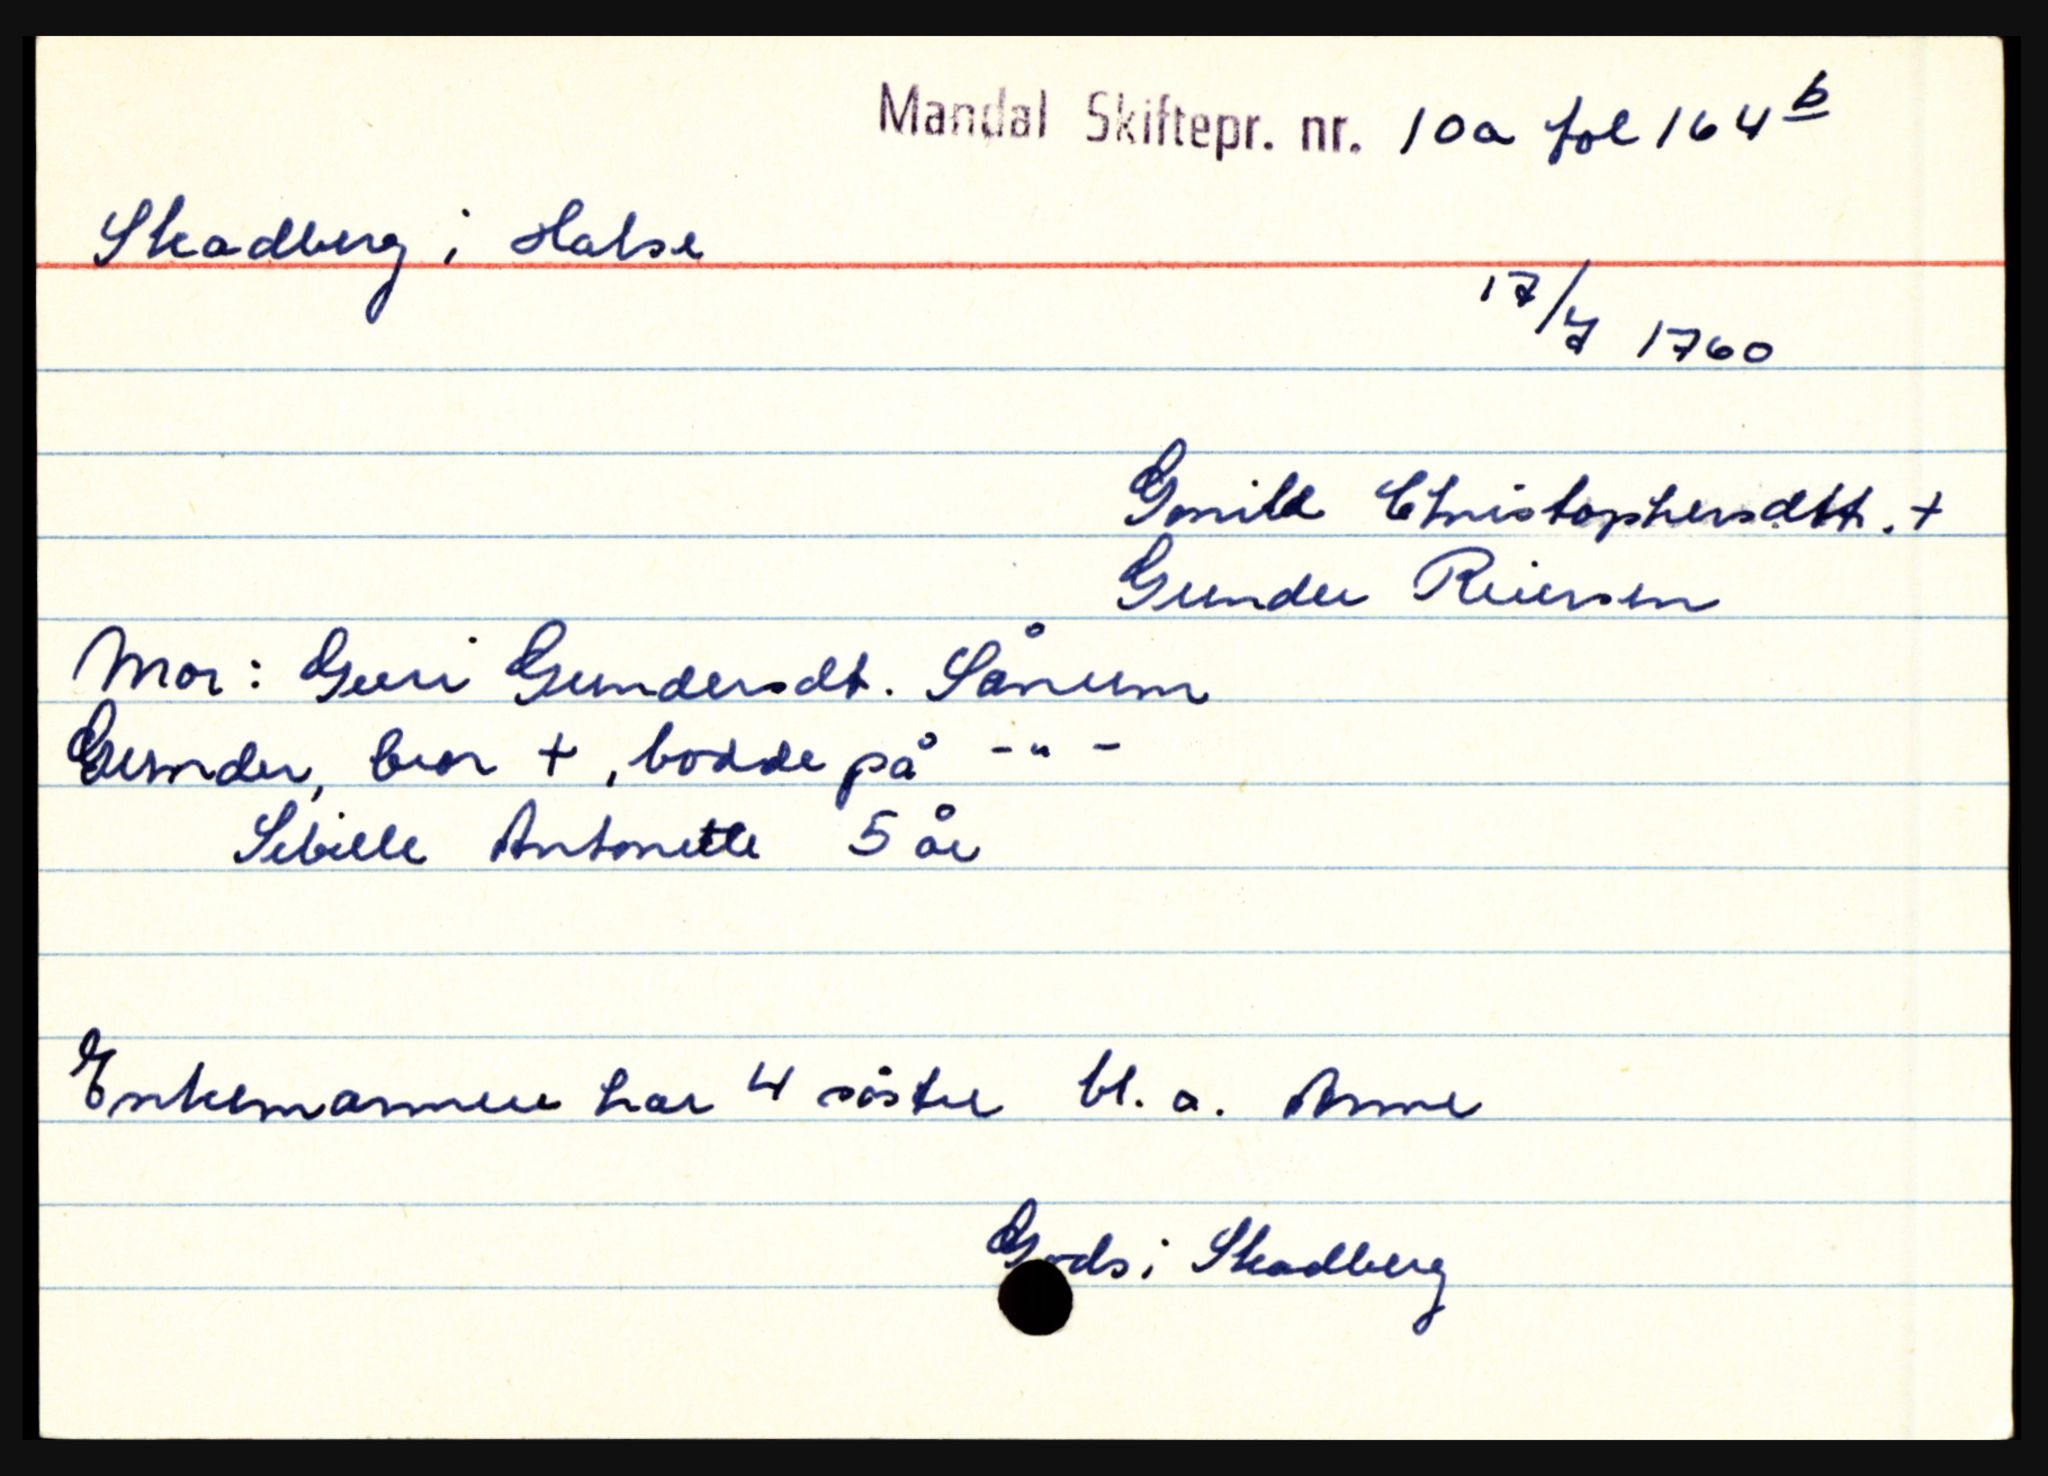 Mandal Skiftepr. nr. 10a fol 164 b
Skadberg i Halse
17/7 1760
Gonild Christophersdtt. +
Gunder Reiersen
Mor: Guri Gundersdt. Sånum
Gunder, bror +, bodde på - " -
Sibille Antonette 5 år
Enkemannen har 4 søstre bl. a. Anne
Gods i Skadberg